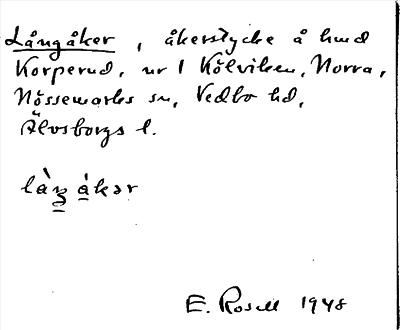 Långåker, åkerstycke å hmd
Korperud, nr 1 Kölviken, Norra,
Nössemarks sn, Vedbo hd,
Älvsborgs l.
E. Rosell 1948